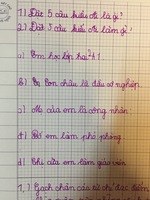 1) Đặt 5 câu kiểu Ai là gì?
2) Đặt 5 câu kiểu Ai làm gì?
a) Em học lớp hai
b) Bạn Châu là
c) Mẹ của em là công nhân.
d) Bố em làm phó phòng.
đ) Chị của em làm giáo viên.
1,) Gạch chân các từ chỉ đặc điểm